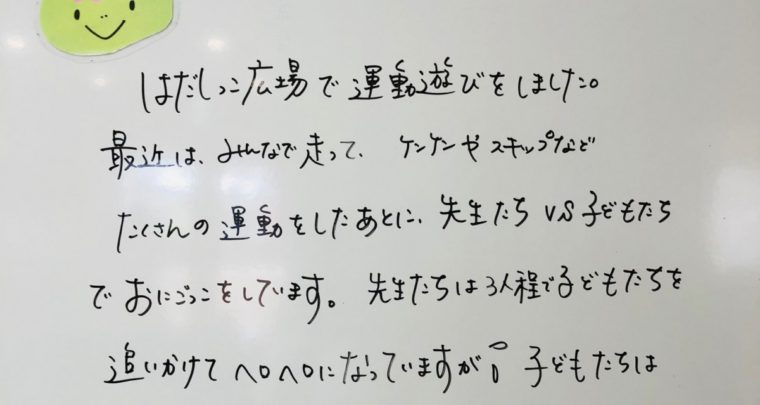 はだしっこ広場で運動遊びをしました。
最近は、みんなで走って、ケンケンやスキップなど
たくさんの運動をしたあとに、先生たち VS 子どもたち
でおにごっこをしています。先生たちは3人程で子どもたちを
追いかけてヘロヘロになっていますが 子どもたちは